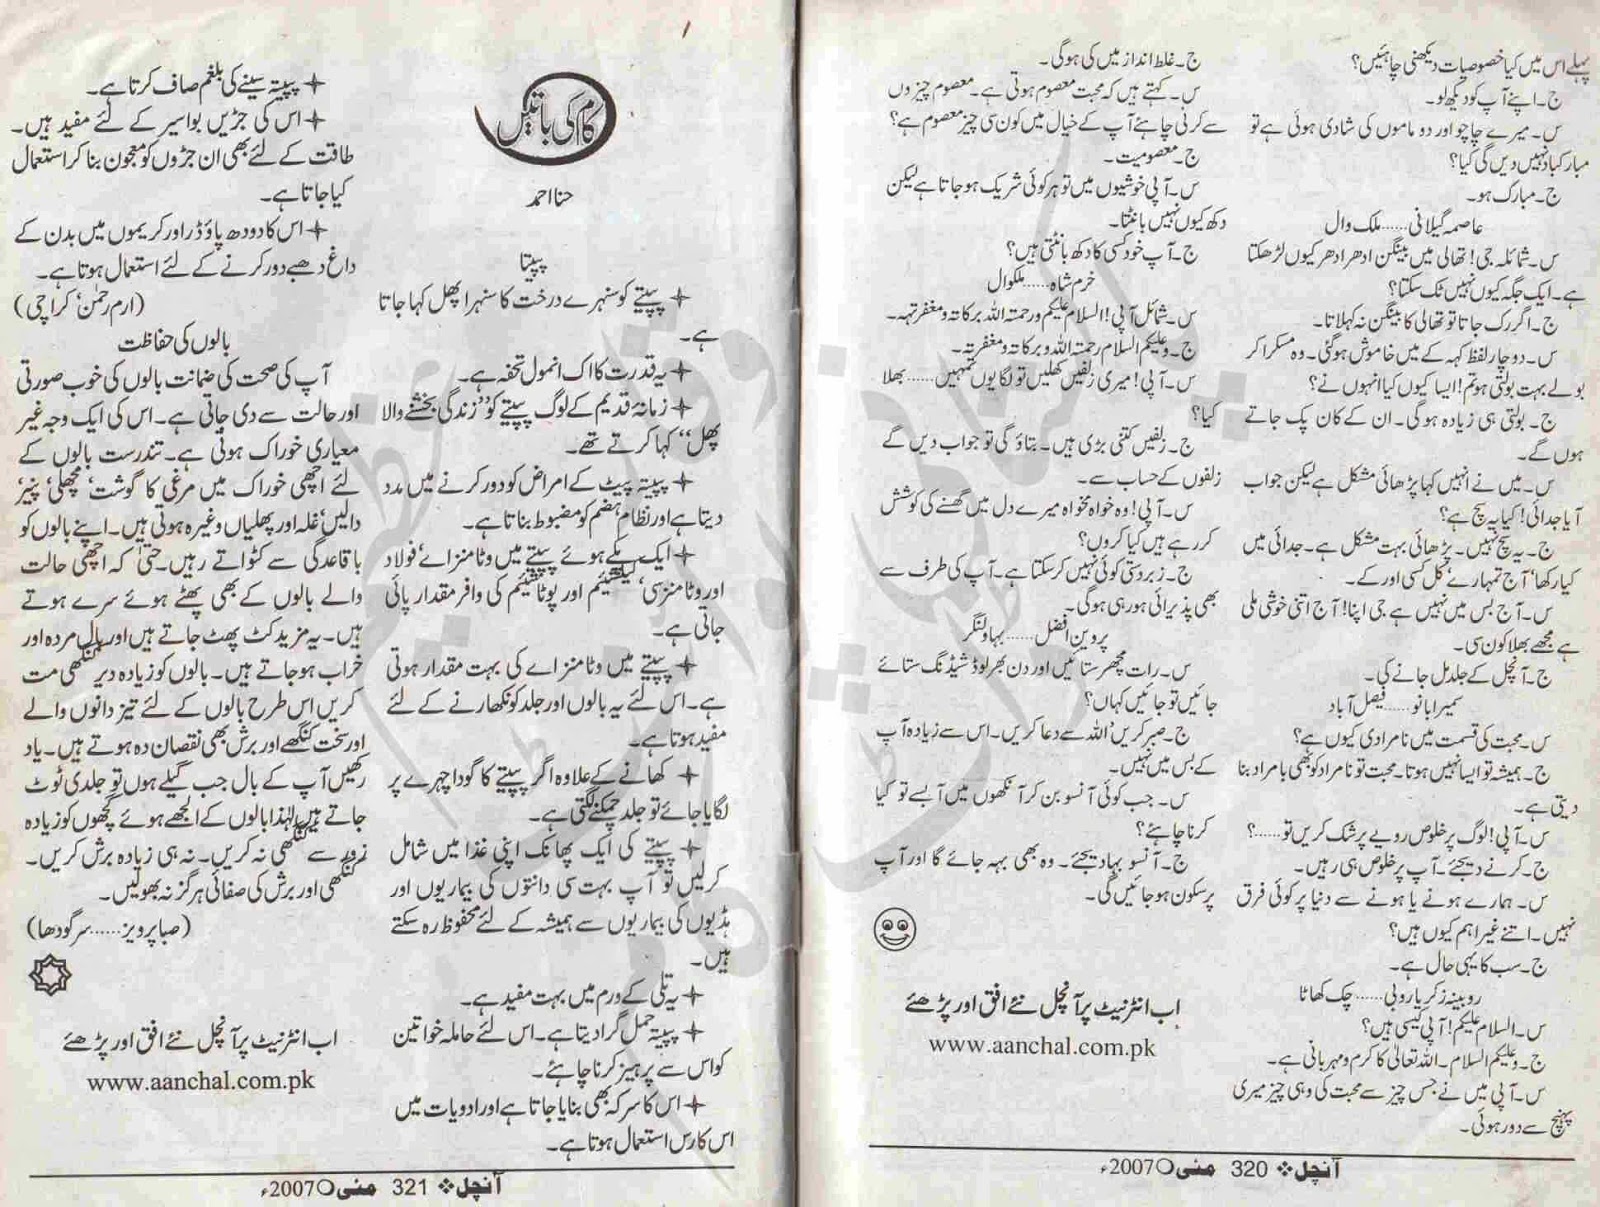 پہلے اس میں کیا خصوصیات دیکھنی چاہئیں؟
ج۔ اپنے آپ کو دیکھ لو۔
س۔ میرے چاچو اور دو ماموں کی شادی ہوئی ہے تو
مبارکباد نہیں دیں گی کیا؟
ج۔ مبارک ہو۔
عاصمہ گیلانی...... ملک وال
س۔ شمائلہ جی! تھالی میں بینگن ادھر ادھر کیوں لڑھکتا
ہے۔ ایک جگہ کیوں نہیں ٹک سکتا؟
ج۔ اگر رک جاتا تو تھالی کا بینگن نہ کہلاتا۔
س۔ دو چار لفظ کہہ کے میں خاموش ہوگئی۔ وہ مسکرا کر
بولے بہت بولتی ہو تم! ایسا کیوں کیا انہوں نے؟
ج۔ بولتی ہی زیادہ ہوگی۔ ان کے کان پک جاتے
ہوں گے۔
س۔ میں نے انہیں کہا پڑھائی مشکل ہے لیکن جواب
آیا جدائی! کیا یہ سچ ہے؟
ج۔ یہ سچ نہیں۔ پڑھائی بہت مشکل ہے۔ جدائی میں
کیا رکھا‘ آج تمہارے‘ کل کسی اور کے۔
س۔ آج بس میں نہیں ہے جی اپنا! آج اتنی خوشی ملی
ہے مجھے بھلا کون سی۔
ج۔ آنچل کے جلد مل جانے کی۔
سمیرا بانو...... فیصل آباد
س۔ محبت کی قسمت میں نامرادی کیوں ہے؟
ج۔ ہمیشہ تو ایسا نہیں ہوتا۔ محبت تو نامراد کو بھی بامراد بنا
دیتی ہے۔
س۔ آپی! لوگ پرخلوص رویے پر شک کریں تو......؟
ج۔ کرنے دیجئے۔ آپ پرخلوص ہی رہیں۔
س۔ ہمارے ہونے یا ہونے سے دنیا پر کوئی فرق
نہیں۔ اتنے غیر اہم کیوں ہیں؟
ج۔ سب کا یہی حال ہے۔
روبینہ زکریا روبی...... چک کھاٹا
س۔ السلام علیکم! آپی کیسی ہیں؟
ج۔ وعلیکم السلام۔ اللہ تعالیٰ کا کرم و مہربانی ہے۔
س۔ آپی میں نے جس چیز سے محبت کی وہی چیز میری
پہنچ سے دور ہوئی۔
ج۔ غلط انداز میں کی ہوگی۔
س۔ کہتے ہیں کہ محبت معصوم ہوتی ہے۔ معصوم چیزوں
سے کرنی چاہئے آپ کے خیال میں کون سی چیز معصوم ہے؟
ج۔ معصومیت۔
س۔ آپی خوشیوں میں تو ہر کوئی شریک ہوجاتا ہے لیکن
دکھ کیوں نہیں بانٹتا۔
ج۔ آپ خود کسی کا دکھ بانٹتی ہیں؟
خرم شاہ...... ملکوال
س۔ شمائل آپی! السلام علیکم ورحمتہ اللہ برکاتہ و مغفرتہہ۔
ج۔ وعلیکم السلام رحمتہ اللہ وبرکاتہ و مغفرتہ۔
س۔ آپی! میری زلفیں کھلیں تو لگا یوں تمہیں...... بھلا
کیا؟
ج۔ زلفیں کتنی بڑی ہیں۔ بتاؤ گی تو جواب دیں گے
زلفوں کے حساب سے۔
س۔ آپی! وہ خواہ مخواہ میرے دل میں گھسنے کی کوشش
کررہے ہیں کیا کروں؟
ج۔ زبردستی کوئی نہیں کرسکتا ہے۔ آپ کی طرف سے
بھی پذیرائی ہورہی ہوگی۔
پروین افضل...... بہاولنگر
س۔ رات مچھر ستائیں اور دن بھر لوڈ شیڈنگ ستائے
جائیں تو جائیں کہاں؟
ج۔ صبر کریں‘ اللہ سے دعا کریں۔ اس سے زیادہ آپ
کے بس میں نہیں۔
س۔ جب کوئی آنسو بن کر آنکھوں میں آبسے تو کیا
کرنا چاہئے؟
ج۔ آنسو بہا دیجئے۔ وہ بھی بہہ جائے گا اور آپ
پرسکون ہوجائیں گی۔
اب انٹرنیٹ پر آنچل نئے افق اور پڑھئے
www.aanchal.com.pk
آنچل 320 مئی 2007ء
کام کی باتیں
حنا احمد
پپیتا
پپیتے کو سنہرے درخت کا سنہرا پھل کہا جاتا
ہے۔
یہ قدرت کا اک انمول تحفہ ہے۔
زمانۂ قدیم کے لوگ پپیتے کو ’’زندگی بخشنے والا
پھل‘‘ کہا کرتے تھے۔
پپیتہ پیٹ کے امراض کو دور کرنے میں مدد
دیتا ہے اور نظام ہضم کو مضبوط بناتا ہے۔
ایک پکے ہوئے پپیتے میں وٹامنز اے‘ فولاد
اور وٹامنز سی‘ کیلشیئم اور پوٹاشیئم کی وافر مقدار پائی
جاتی ہے۔
پپیتے میں وٹامنز اے کی بہت مقدار ہوتی
ہے۔ اس لئے یہ بالوں اور جلد کو نکھارنے کے لئے
مفید ہوتا ہے۔
کھانے کے علاوہ اگر پپیتے کا گودا چہرے پر
لگایا جائے تو جلد چمکنے لگتی ہے۔
پپیتے کی ایک پھانک اپنی غذا میں شامل
کرلیں تو آپ بہت سی دانتوں کی بیماریوں اور
ہڈیوں کی بیماریوں سے ہمیشہ کے لئے محفوظ رہ سکتے
ہیں۔
یہ تلی کے ورم میں بہت مفید ہے۔
پپیتہ حمل گرا دیتا ہے۔ اس لئے حاملہ خواتین
کو اس سے پرہیز کرنا چاہئے۔
اس کا سرکہ بھی بنایا جاتا ہے اور ادویات میں
اس کا رس استعمال ہوتا ہے۔
پپیتہ سینے کی بلغم صاف کرتا ہے۔
اس کی جڑیں بواسیر کے لئے مفید ہیں۔
طاقت کے لئے بھی ان جڑوں کو معجون بنا کر استعمال
کیا جاتا ہے۔
اس کا دودھ پاؤڈر اور کریموں میں بدن کے
داغ دھبے دور کرنے کے لئے استعمال ہوتا ہے۔
(ارم رحمٰن‘ کراچی)
بالوں کی حفاظت
آپ کی صحت کی ضمانت بالوں کی خوب صورتی
اور حالت سے دی جاتی ہے۔ اس کی ایک وجہ غیر
معیاری خوراک ہوتی ہے۔ تندرست بالوں کے
لئے اچھی خوراک میں مرغی کا گوشت‘ مچھلی‘ پنیر‘
دالیں‘ غلہ اور پھلیاں وغیرہ ہوتی ہیں۔ اپنے بالوں کو
باقاعدگی سے کٹواتے رہیں۔ حتیٰ کہ اچھی حالت
والے بالوں کے بھی پھٹے ہوئے سرے ہوتے
ہیں۔ یہ مزید کٹ پھٹ جاتے ہیں اور بال مردہ اور
خراب ہوجاتے ہیں۔ بالوں کو زیادہ دیر کنگھی مت
کریں اس طرح بالوں کے لئے تیز دانوں والے
اور سخت کنگھے اور برش بھی نقصان دہ ہوتے ہیں۔ یاد
رکھیں آپ کے بال جب گیلے ہوں تو جلدی ٹوٹ
جاتے ہیں لہٰذا بالوں کے الجھے ہوئے گچھوں کو زیادہ
زور سے کنگھی نہ کریں۔ نہ ہی زیادہ برش کریں۔
کنگھی اور برش کی صفائی ہرگز نہ بھولیں۔
(صبا پرویز...... سرگودھا)
اب انٹرنیٹ پر آنچل نئے افق اور پڑھئے
www.aanchal.com.pk
آنچل 321 مئی 2007ء